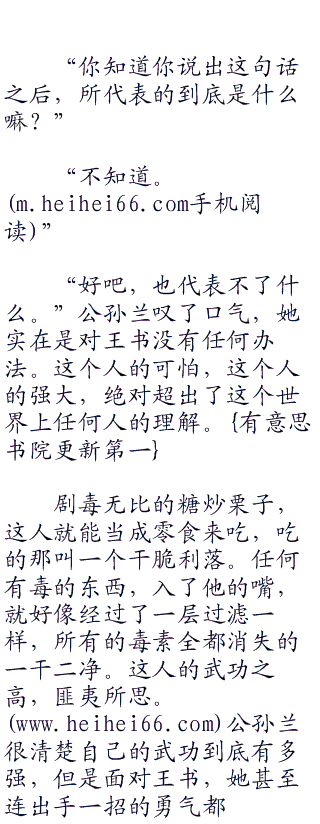 “你知道你说出这句话
之后，所代表的到底是什么
嘛？”
“不知道。
(m.heihei66.com手机阅
读)”
“好吧，也代表不了什
么。”公孙兰叹了口气，她
实在是对王书没有任何办
法。这个人的可怕，这个人
的强大，绝对超出了这个世
界上任何人的理解。{有意思
书院更新第一}
剧毒无比的糖炒栗子，
这人就能当成零食来吃，吃
的那叫一个干脆利落。任何
有毒的东西，入了他的嘴，
就好像经过了一层过滤一
样，所有的毒素全都消失的
一干二净。这人的武功之
高，匪夷所思。
(www.heihei66.com)公孙兰
很清楚自己的武功到底有多
强，但是面对王书，她甚至
连出手一招的勇气都